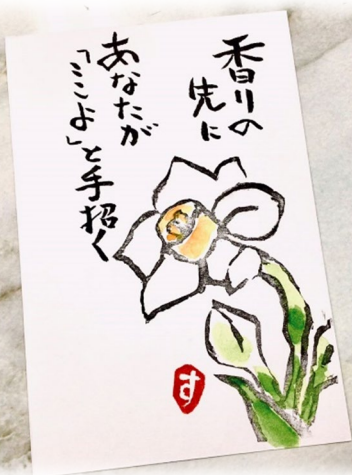 香りの
先に
あなたが
「ここよ」と手招く
す